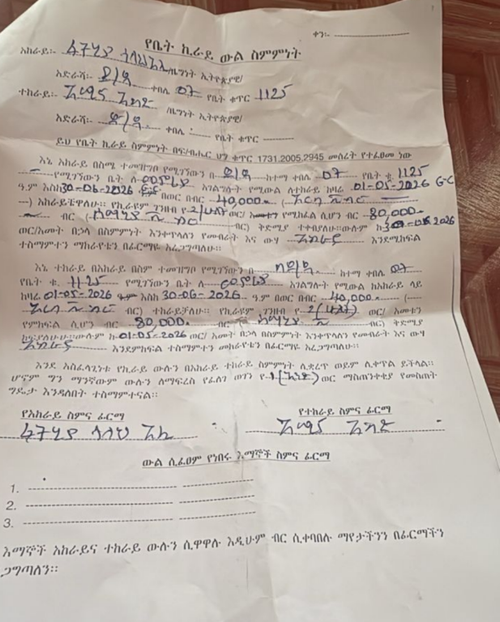 ቀን፡- 
የቤት ኪራይ ውል ስምምነት
አከራይ፡- ፈትሂያ ሳላህ አሊ /ዜግነት ኢትዮጵያዊ/
አድራሻ፡- ድ/ዳ ቀበሌ 07 የቤት ቁጥር 1125
ተከራይ፡- /ዜግነት ኢትዮጵያዊ/
አድራሻ፡- ድ/ዳ ቀበሌ የቤት ቁጥር
ይህ የቤት ኪራይ ስምምነት በፍ/ብሔር ህግ ቁጥር 1731.2005.2945 መሰረት የተፈፀመ ነው
እኔ አከራይ በስሜ ተመዝግቦ የሚገኘውን በ ድ/ዳ ከተማ ቀበሌ 07 የቤት ቁ 1125
የሚገኘውን ቤት ለ አገልግሎት የሚውል ለተከራይ ከዛሬ 01-05-2026 G.C
ዓ.ም እስከ 30-06-2026 በወር በብር 40,000 (አርባ ሺ ብር
) አከራይቻለሁ። የኪራዩም ገንዘብ የ 2/ሁለት ወር/ አመቱን የሚከፈል ሲሆን ብር 80,000
ብር (ሰማንያ ሺ ብር ብር) ቅድሚያ ተቀብያለሁ።ውሉም ከ 2026
ወር/አመት በኃላ በስምምነት እንቀጥላለን የመብራት እና ውሃ እንደሚከፍል
ተስማምተን ማከራየቴን በፊርማዬ አረጋግጣለሁ።
እኔ ተከራይ በአከራይ በስም ተመዝግቦ የሚገኘውን በ ከተማ ቀበሌ 07
የቤት ቁ. 1125 የሚገኘውን ቤት ለ አገልግሎት የሚውል ከአከራይ ላይ
ከዛሬ 01-05-2026 ዓ.ም እስከ 30-06-2026 ዓ.ም በወር በብር 40,000 (
አርባ ሺ ብር ብር) ተከራይቻለሁ። የኪራዩም ገንዘብ የ 2(ሁለት) ወር/ አመቱን
የምከፍል ሲሆን ብር 80,000 ብር (ሰማንያ ሺ ብር) ቅድሚያ
ከፍያለሁ።ውሉም ከ 01-05-2026 ወር/ አመት በኃላ በስምምነት እንቀጥላለን የመብራት እና ውሃ
እንደምከፍል ተስማምተን መከራየቴን በፊርማዬ አረጋግጣለሁ።
እንደ አስፈላጊነቱ የኪራይ ውሉን በአከራይ ተከራይ ስምምነት ሊቋረጥ ወይም ሊቀጥል ይችላል።
ሆኖም ግን ማንኛውም ውሉን ለማፍረስ የፈለገ ወገን የ 1(አንድ) ወር ማስጠንቀቂያ የመስጠት
ግዴታ እንዳለበት ተስማምተናል።
የአከራይ ስምና ፊርማ የተከራይ ስምና ፊርማ
ፈትሂያ ሳላህ አሊ
ውል ሲፈፀም የነበሩ እማኞች ስምና ፊርማ
1.
2.
3.
እማኞች አከራይና ተከራይ ውሉን ሲዋዋሉ እዲሁም ብር ሲቀባበሉ ማየታችንን በፊርማችን
ጋግጣለን።